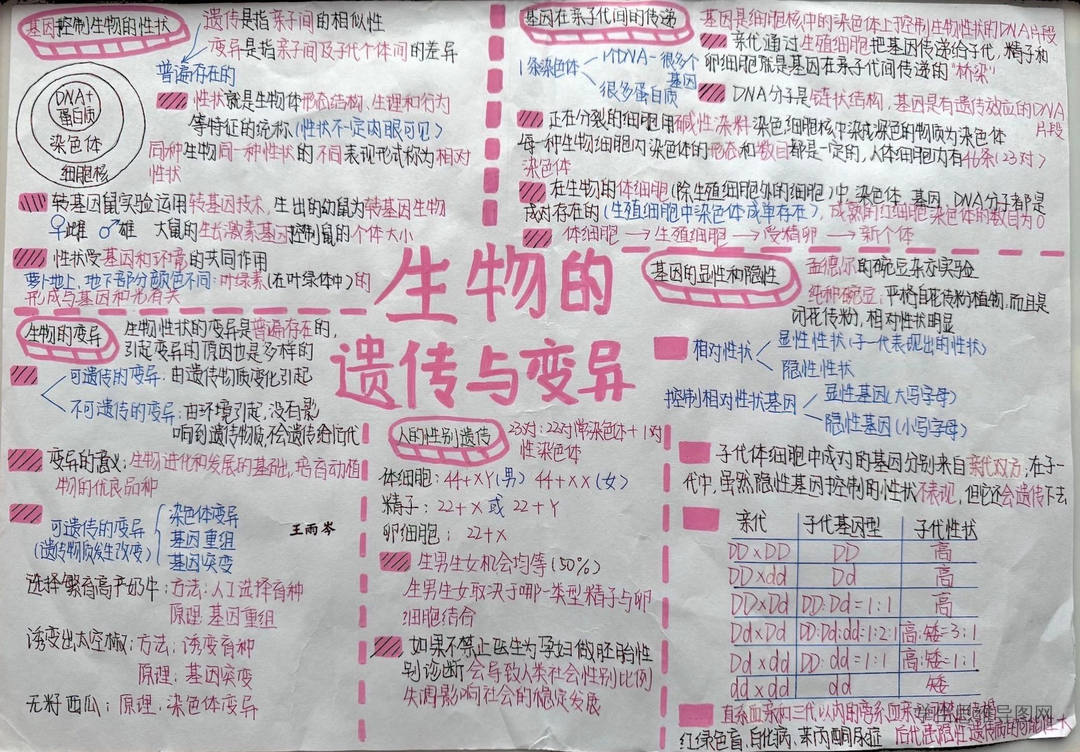 基因控制生物的性状
遗传是指亲子间的相似性
变异是指亲子间及子代个体间的差异
普遍存在的
DNA+
蛋白质
染色体
细胞核
性状就是生物体形态结构、生理和行为
等特征的统称(性状不一定肉眼可见)
同种生物同一种性状的不同表现形式称为相对
性状
转基因鼠实验运用转基因技术,生出的幼鼠为转基因生物
♀雌 ♂雄 大鼠的生长激素基因控制鼠的个体大小
性状受基因和环境的共同作用
萝卜地上、地下部分颜色不同:叶绿素(在叶绿体中)的
形成与基因和光有关
基因在亲子代间的传递
基因是细胞核中的染色体上控制生物性状的DNA片段
亲代通过生殖细胞把基因传递给子代,精子和
卵细胞就是基因在亲子代间传递的“桥梁”
1条染色体
1个DNA-很多个
基因
很多蛋白质
DNA分子是链状结构,基因是有遗传效应的DNA
片段
正在分裂的细胞用碱性染料染色,细胞核中染成深色的物质为染色体
每一种生物细胞内染色体的形态和数目都是一定的,人体细胞内有46条(23对)
染色体
在生物的体细胞(除生殖细胞外的细胞)中,染色体、基因、DNA分子都是
成对存在的(生殖细胞中染色体成单存在),成熟的红细胞染色体的数目为0
体细胞→生殖细胞→受精卵→新个体
生物的
遗传与变异
生物的变异
生物性状的变异是普遍存在的,
引起变异的原因也是多样的
可遗传的变异:由遗传物质变化引起
不可遗传的变异:由环境引起,没有影
响到遗传物质,不会遗传给后代
变异的意义:生物进化和发展的基础,培育动植
物的优良品种
可遗传的变异
(遗传物质发生改变)
染色体变异
基因重组
基因突变
王雨岑
选择繁育高产奶牛:方法:人工选择育种
原理:基因重组
诱变出太空椒:方法:诱变育种
原理:基因突变
无籽西瓜:原理:染色体变异
人的性别遗传
23对:22对常染色体+1对
性染色体
体细胞:44+XY(男) 44+XX(女)
精子:22+X或22+Y
卵细胞:22+X
生男生女机会均等(50%)
生男生女取决于哪一类型精子与卵
细胞结合
如果不禁止医生为孕妇做胚胎性
别诊断会导致人类社会性别比例
失调影响社会的稳定发展
基因的显性和隐性
孟德尔的碗豆杂交实验
纯种碗豆:严格自花传粉植物,而且是
闭花传粉,相对性状明显
相对性状
显性性状(子一代表现出的性状)
隐性性状
控制相对性状基因
显性基因(大写字母)
隐性基因(小写字母)
子代体细胞中成对的基因分别来自亲代双方;在子一
代中,虽然隐性基因控制的性状不表现,但它还会遗传下去
亲代 子代基因型 子代性状
DD×DD DD 高
DD×dd Dd 高
DD×Dd DD:Dd=1:1 高
Dd×Dd DD:Dd:dd=1:2:1 高:矮=3:1
Dd×dd DD:dd=1:1 高:矮=1:1
dd×dd dd 矮
直系血亲和三代以内的旁系血亲
红绿色盲、白化病、苯丙酮尿症 后代患隐性遗传病的可能性大